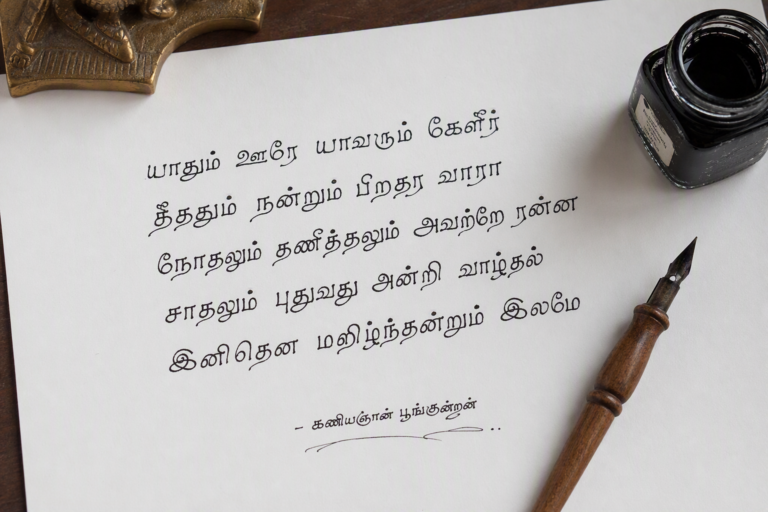 யாதும் ஊரே யாவரும் கேளீர்
தீததும் நன்றும் பிறதர வாரா
நோதலும் தணீத்தலும் அவற்றே ரன்ன
சாதலும் புதுவது அன்றி வாழ்தல்
இனிதென மலிழ்ந்தன்றும் இலமே
- கணியஞான் பூங்குன்றன்